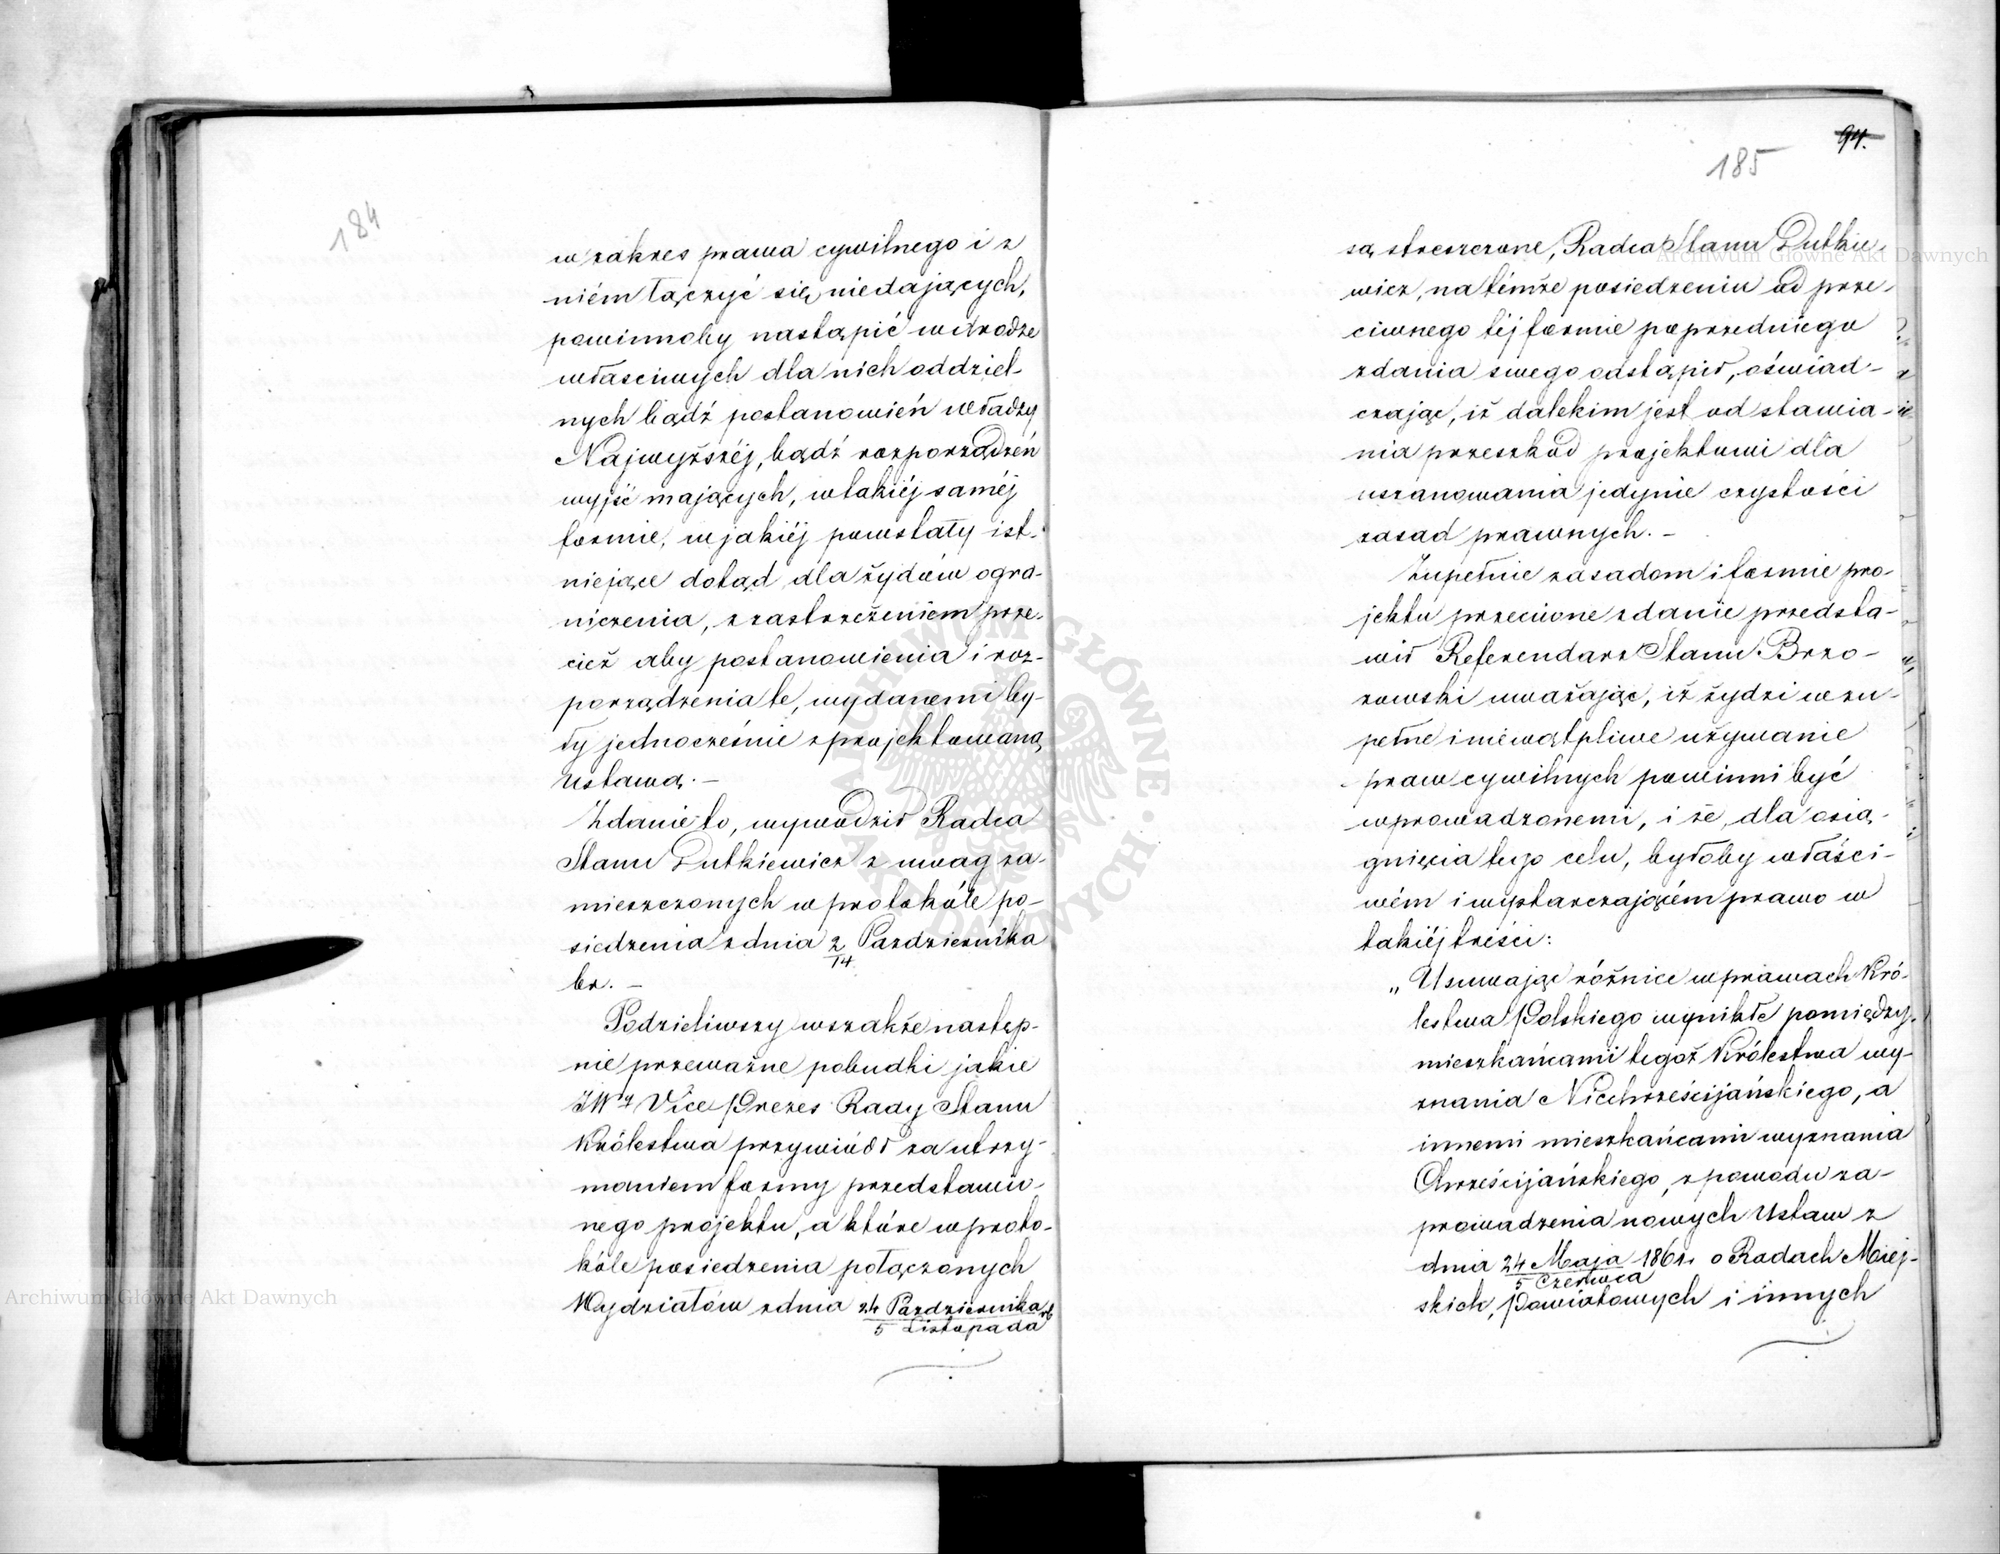 184
w zakres prawa cywilnego i z
niém łączyć się niedających,
powinnoby nastąpić w drodze
właściwych dla nich oddziel-
nych bądź postanowień władzy
Najwyższéj, bądź rozporządzeń
wyjść mających, w takiéj saméj
formie, w jakiéj powstały ist-
niejące dotąd dla żydów ogra-
niczenia, z zastrzeżeniem prze-
cież aby postanowienia i roz-
porządzenia te, wydanemi by-
ły jednocześnie z projektowaną
Ustawą. –
Zdanie to, wywodził Radca
Stanu Dutkiewicz z uwag za-
mieszczonych w protokóle po-
siedzenia z dnia 2/14 Października
br. –
Podzieliwszy wszakże następ-
nie przeważne pobudki jakie
JWy Vice Prezes Rady Stanu
Królestwa przywiódł za utrzy-
maniem formy przedstawio-
nego projektu, a które w proto-
kóle posiedzenia połączonych
Wydziałów z dnia 24 Października/5 Listopada rb
94.
185
są streszczone, Radca Stanu Dutkie-
wicz, na témże posiedzeniu od prze-
ciwnego téj formie poprzedniego
zdania swego odstąpił, oświad-
czając, iż dalekim jest od stawia-
nia przeszkód projektowi dla
uszanowania jedynie czystości
zasad prawnych. –
Zupełnie zasadom i formie pro-
jektu przeciwne zdanie przedsta-
wił Referendarz Stanu Brzo-
zowski uważając, iż żydzi w zu-
pełne i niewątpliwe używanie
praw cywilnych powinni być
wprowadzonemi, i że, dla osią-
gnięcia tego celu, byłoby właści-
wém i wystarczającém prawo w
takiéj treści:
„Usuwając różnice w prawach Kró-
lestwa Polskiego wynikłe pomiędzy
mieszkańcami tegoż Królestwa wy-
znania Niechrześcijańskiego, a
innemi mieszkańcami wyznania
Chrześcijańskiego, z powodu za-
prowadzenia nowych Ustaw z
dnia 24 Maja/5 Czerwca 1861r. o Radach Miej-
skich, Powiatowych i innych
Archiwum Główne Akt Dawnych
Archiwum Główne Akt Dawnych
ARCHIWUM GŁÓWNE AKT DAWNYCH